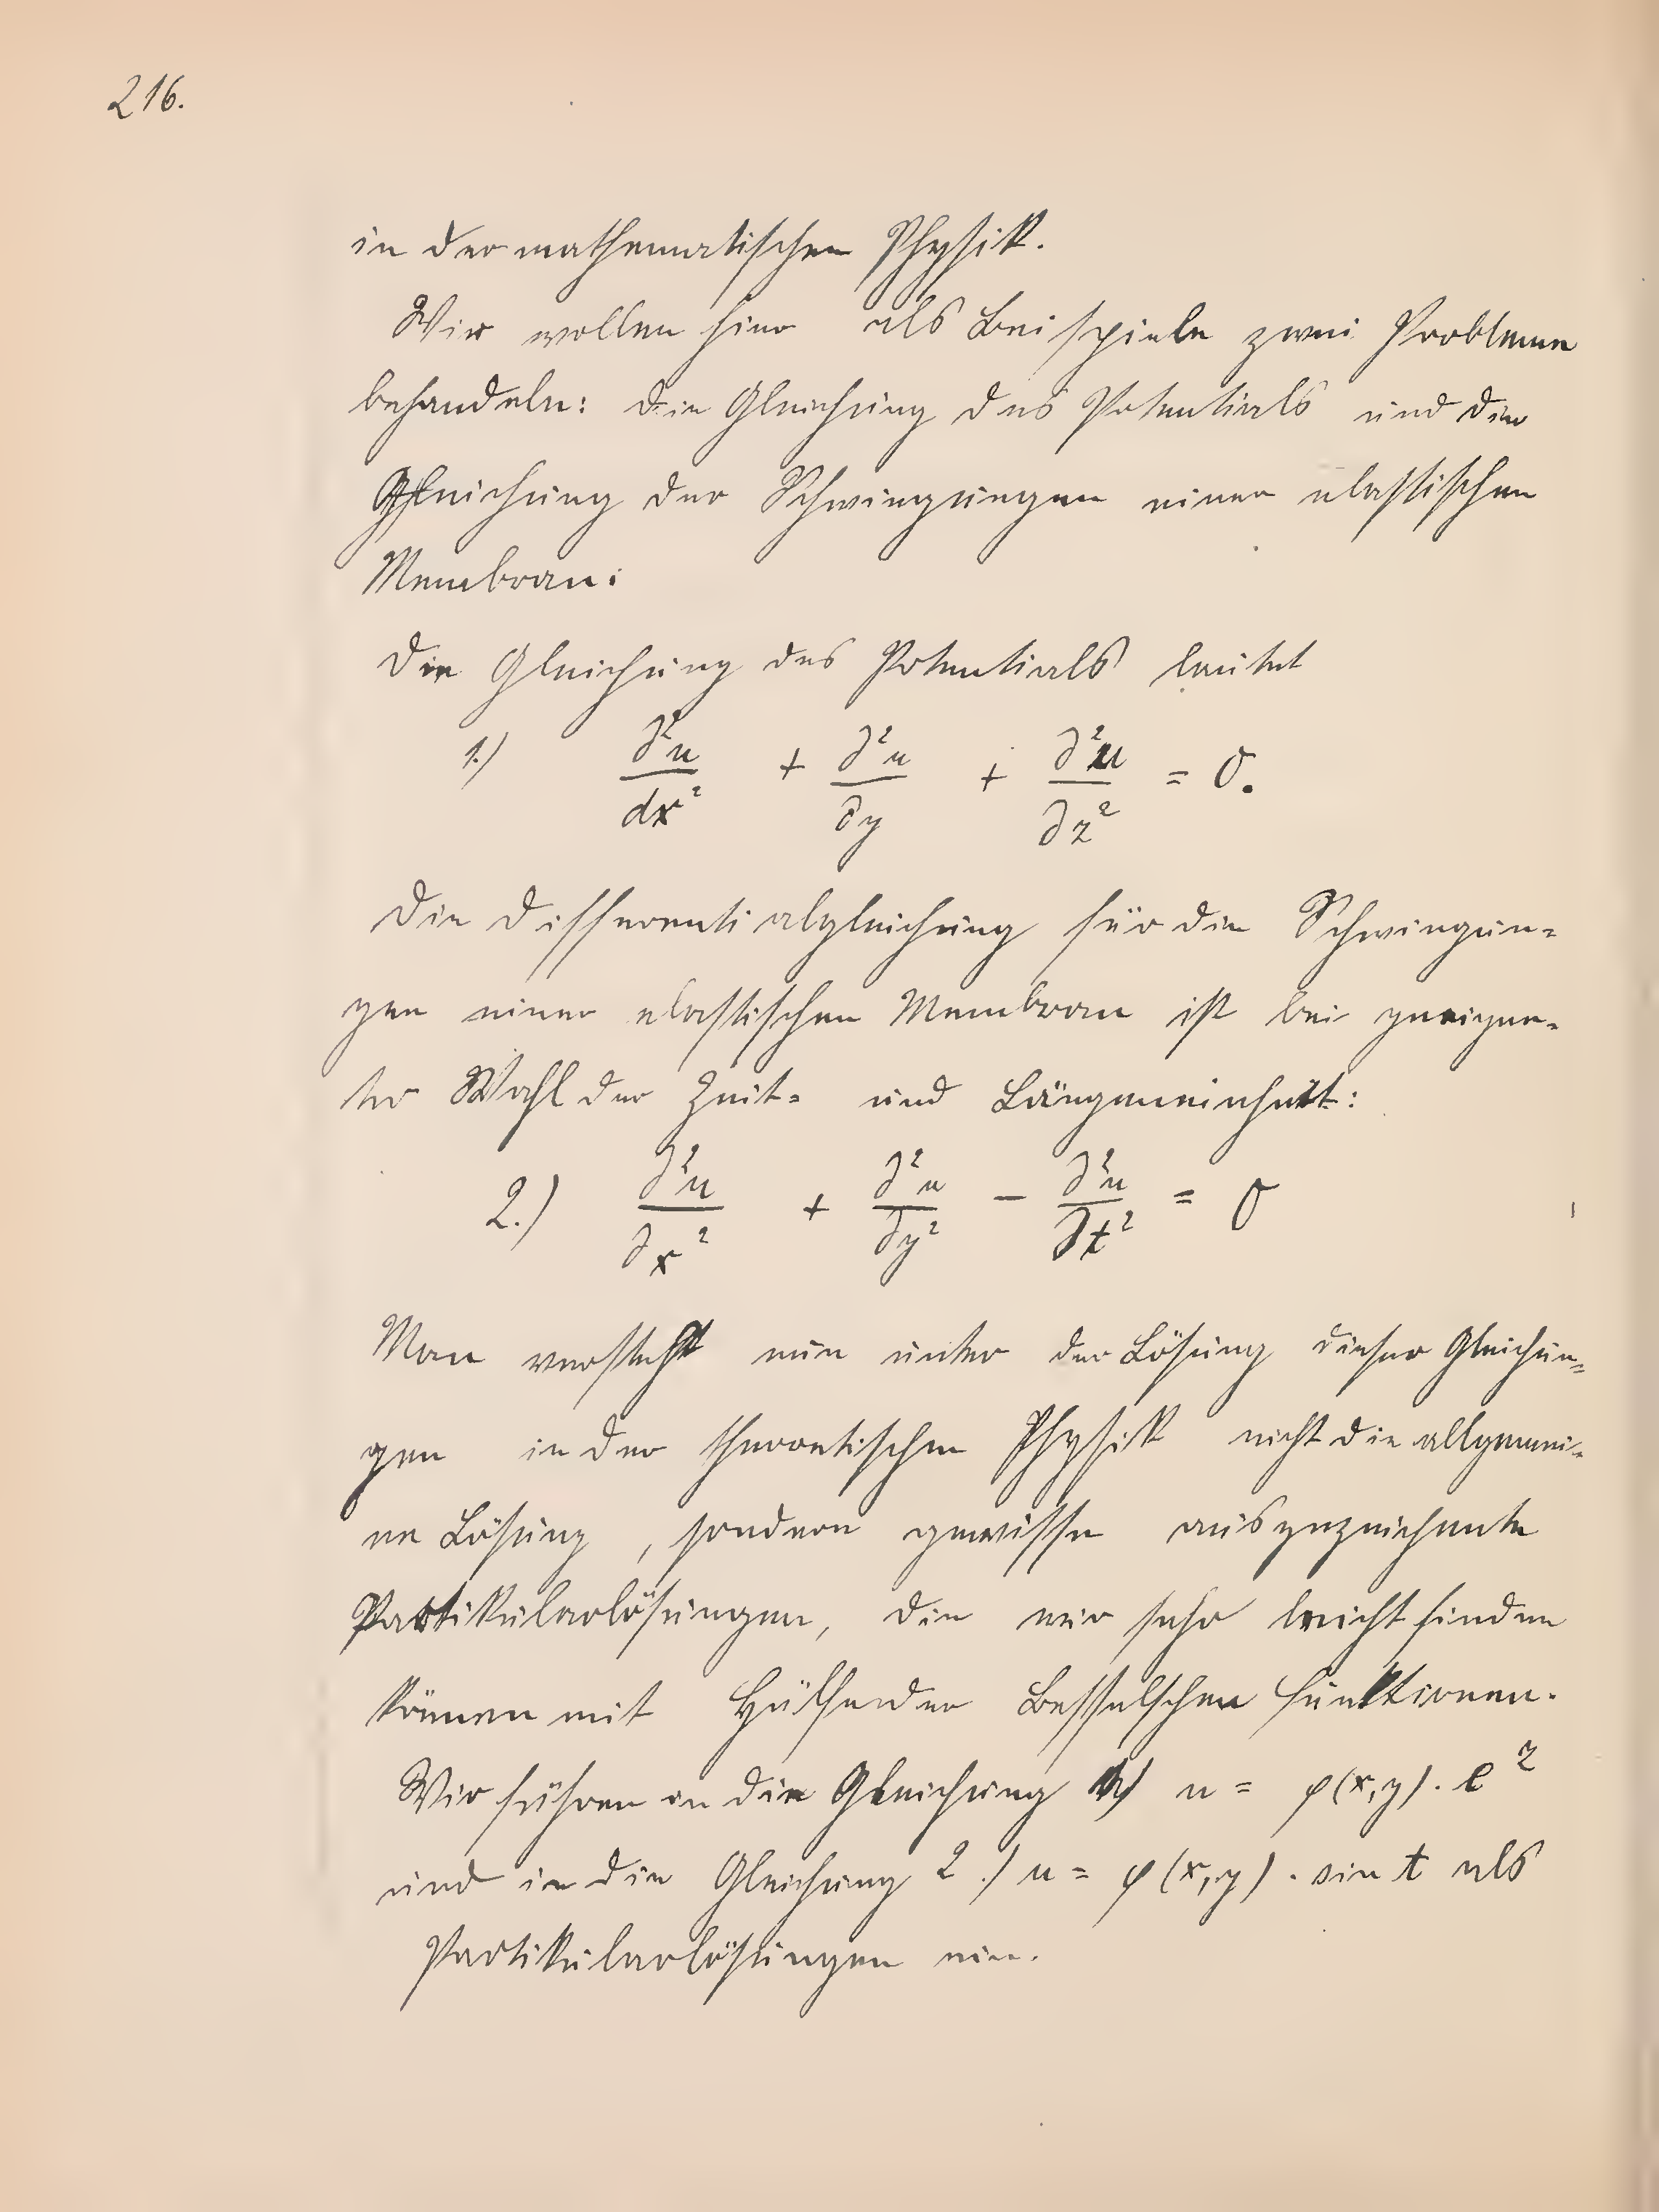 216.
in der mathematischen Physik.
Wir wollen hier als Beispiele zwei Probleme
behandeln: die Gleichung des Potentials und die
Gleichung der Schwingungen einer elastischen
Membran:
Die Gleichung des Potentials lautet
1.) ∂²u/dx² + ∂²u/∂y + ∂²u/∂z² = 0.
Die Differentialgleichung für die Schwingun=
gen einer elastischen Membran ist bei geeigne=
ter Wahl der Zeit= und Längeneinheit:
2.) ∂²u/∂x² + ∂²u/∂y² − ∂²u/∂t² = 0
Man versteht nun unter der Lösung dieser Gleichun=
gen in der theoretischen Physik nicht die allgemei=
ne Lösung, sondern gewisse ausgezeichnete
Partikularlösungen, die wir sehr leicht finden
können mit Hülfe der Besselschen Funktionen.
Wir führen in die Gleichung 1) u = φ(x,y). e^z
und in die Gleichung 2.) u = φ(x,y). sin t als
Partikularlösungen ein.